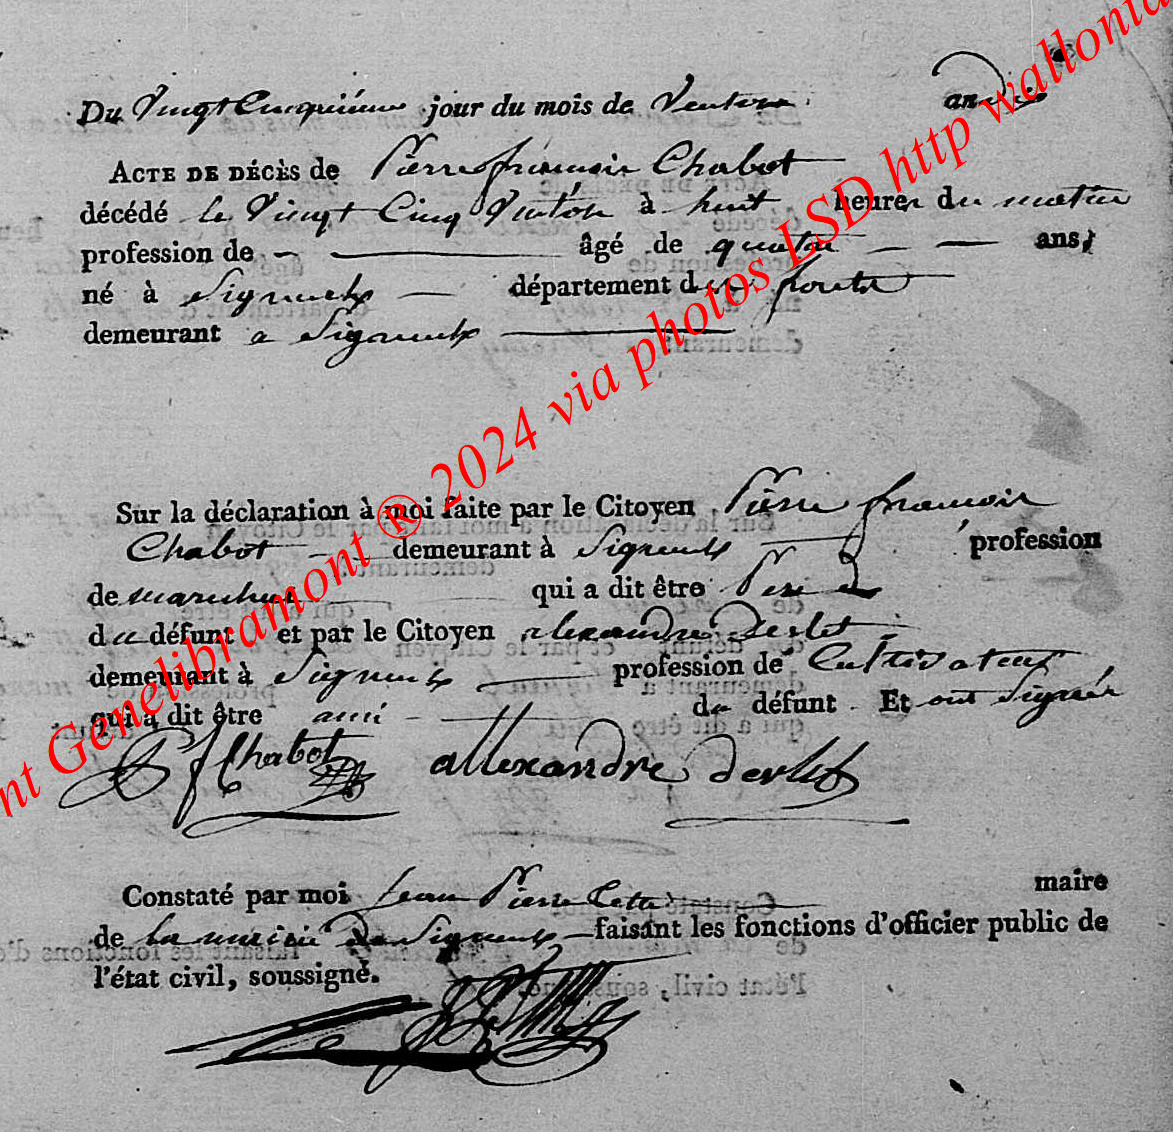 Du Vingt Cinquiéme jour du mois de Ventose an
ACTE DE DÉCÈS de Pierre françois Chabot
décédé le Vingt Cinq Ventose à huit heures du matin
profession de — âgé de quatre — ans,
né à Signeulx — département des forets
demeurant a Signeulx
Sur la déclaration à moi faite par le Citoyen Pierre françois
Chabot — demeurant à Signeulx — profession
de qui a dit être Pere
du défunt et par le Citoyen alexandre Derlet
demeurant à Signeulx — profession de Cultivateur
qui a dit être ami — du défunt. Et ont Signés
P f Chabot allexandre derlet
Constaté par moi Jean Pierre maire
de la mairie De Signeulx — faisant les fonctions d'officier public de
l'état civil, soussigné.
nt Genelibramont ® 2024 via photos LSD http wallonia